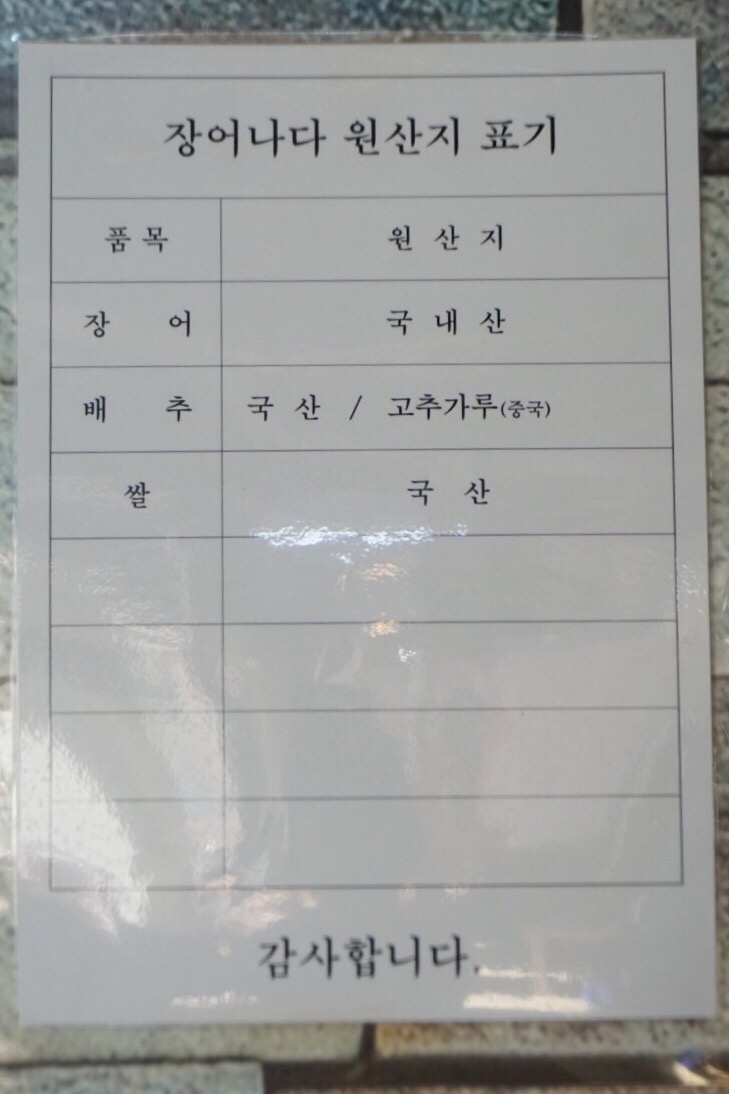 장어나다 원산지 표기
품 목 원 산 지
장 어 국 내 산
배 추 국 산 / 고추가루(중국)
쌀 국 산
감사합니다.